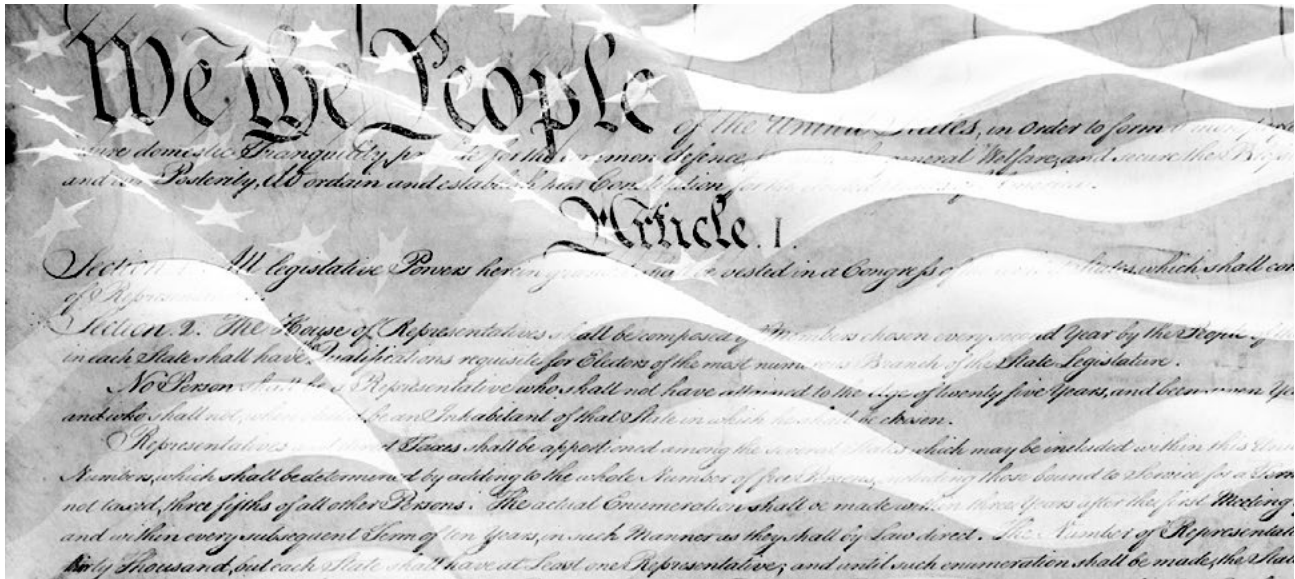 We the People
of the United States, in Order to form
domestic Tranquility, for the common defence, general Welfare, and secure the
and our Posterity, do ordain and establish this Constitution for the
Article. I.
Section. 1. All legislative Powers herein granted shall be vested in a Congress of the States, which shall
of
Section. 2. The House of Representatives shall be composed of Members chosen every second Year by the People of
in each State shall have Qualifications requisite for Electors of the most numerous Branch of the State Legislature.
No Person shall be a Representative who shall not have attained to the Age of twenty five Years, and been seven
and who shall not, when elected, be an Inhabitant of that State in which he shall be chosen.
Representatives and direct Taxes shall be apportioned among the several States which may be included within this
Numbers, which shall be determined by adding to the whole Number of free Persons, including those bound to Service for a
not taxed, three fifths of all other Persons. The actual Enumeration shall be made within three Years after the first Meeting
and within every subsequent Term of ten Years, in such Manner as they shall by Law direct. The Number of
thirty Thousand, but each State shall have at Least one Representative; and until such enumeration shall be made, the